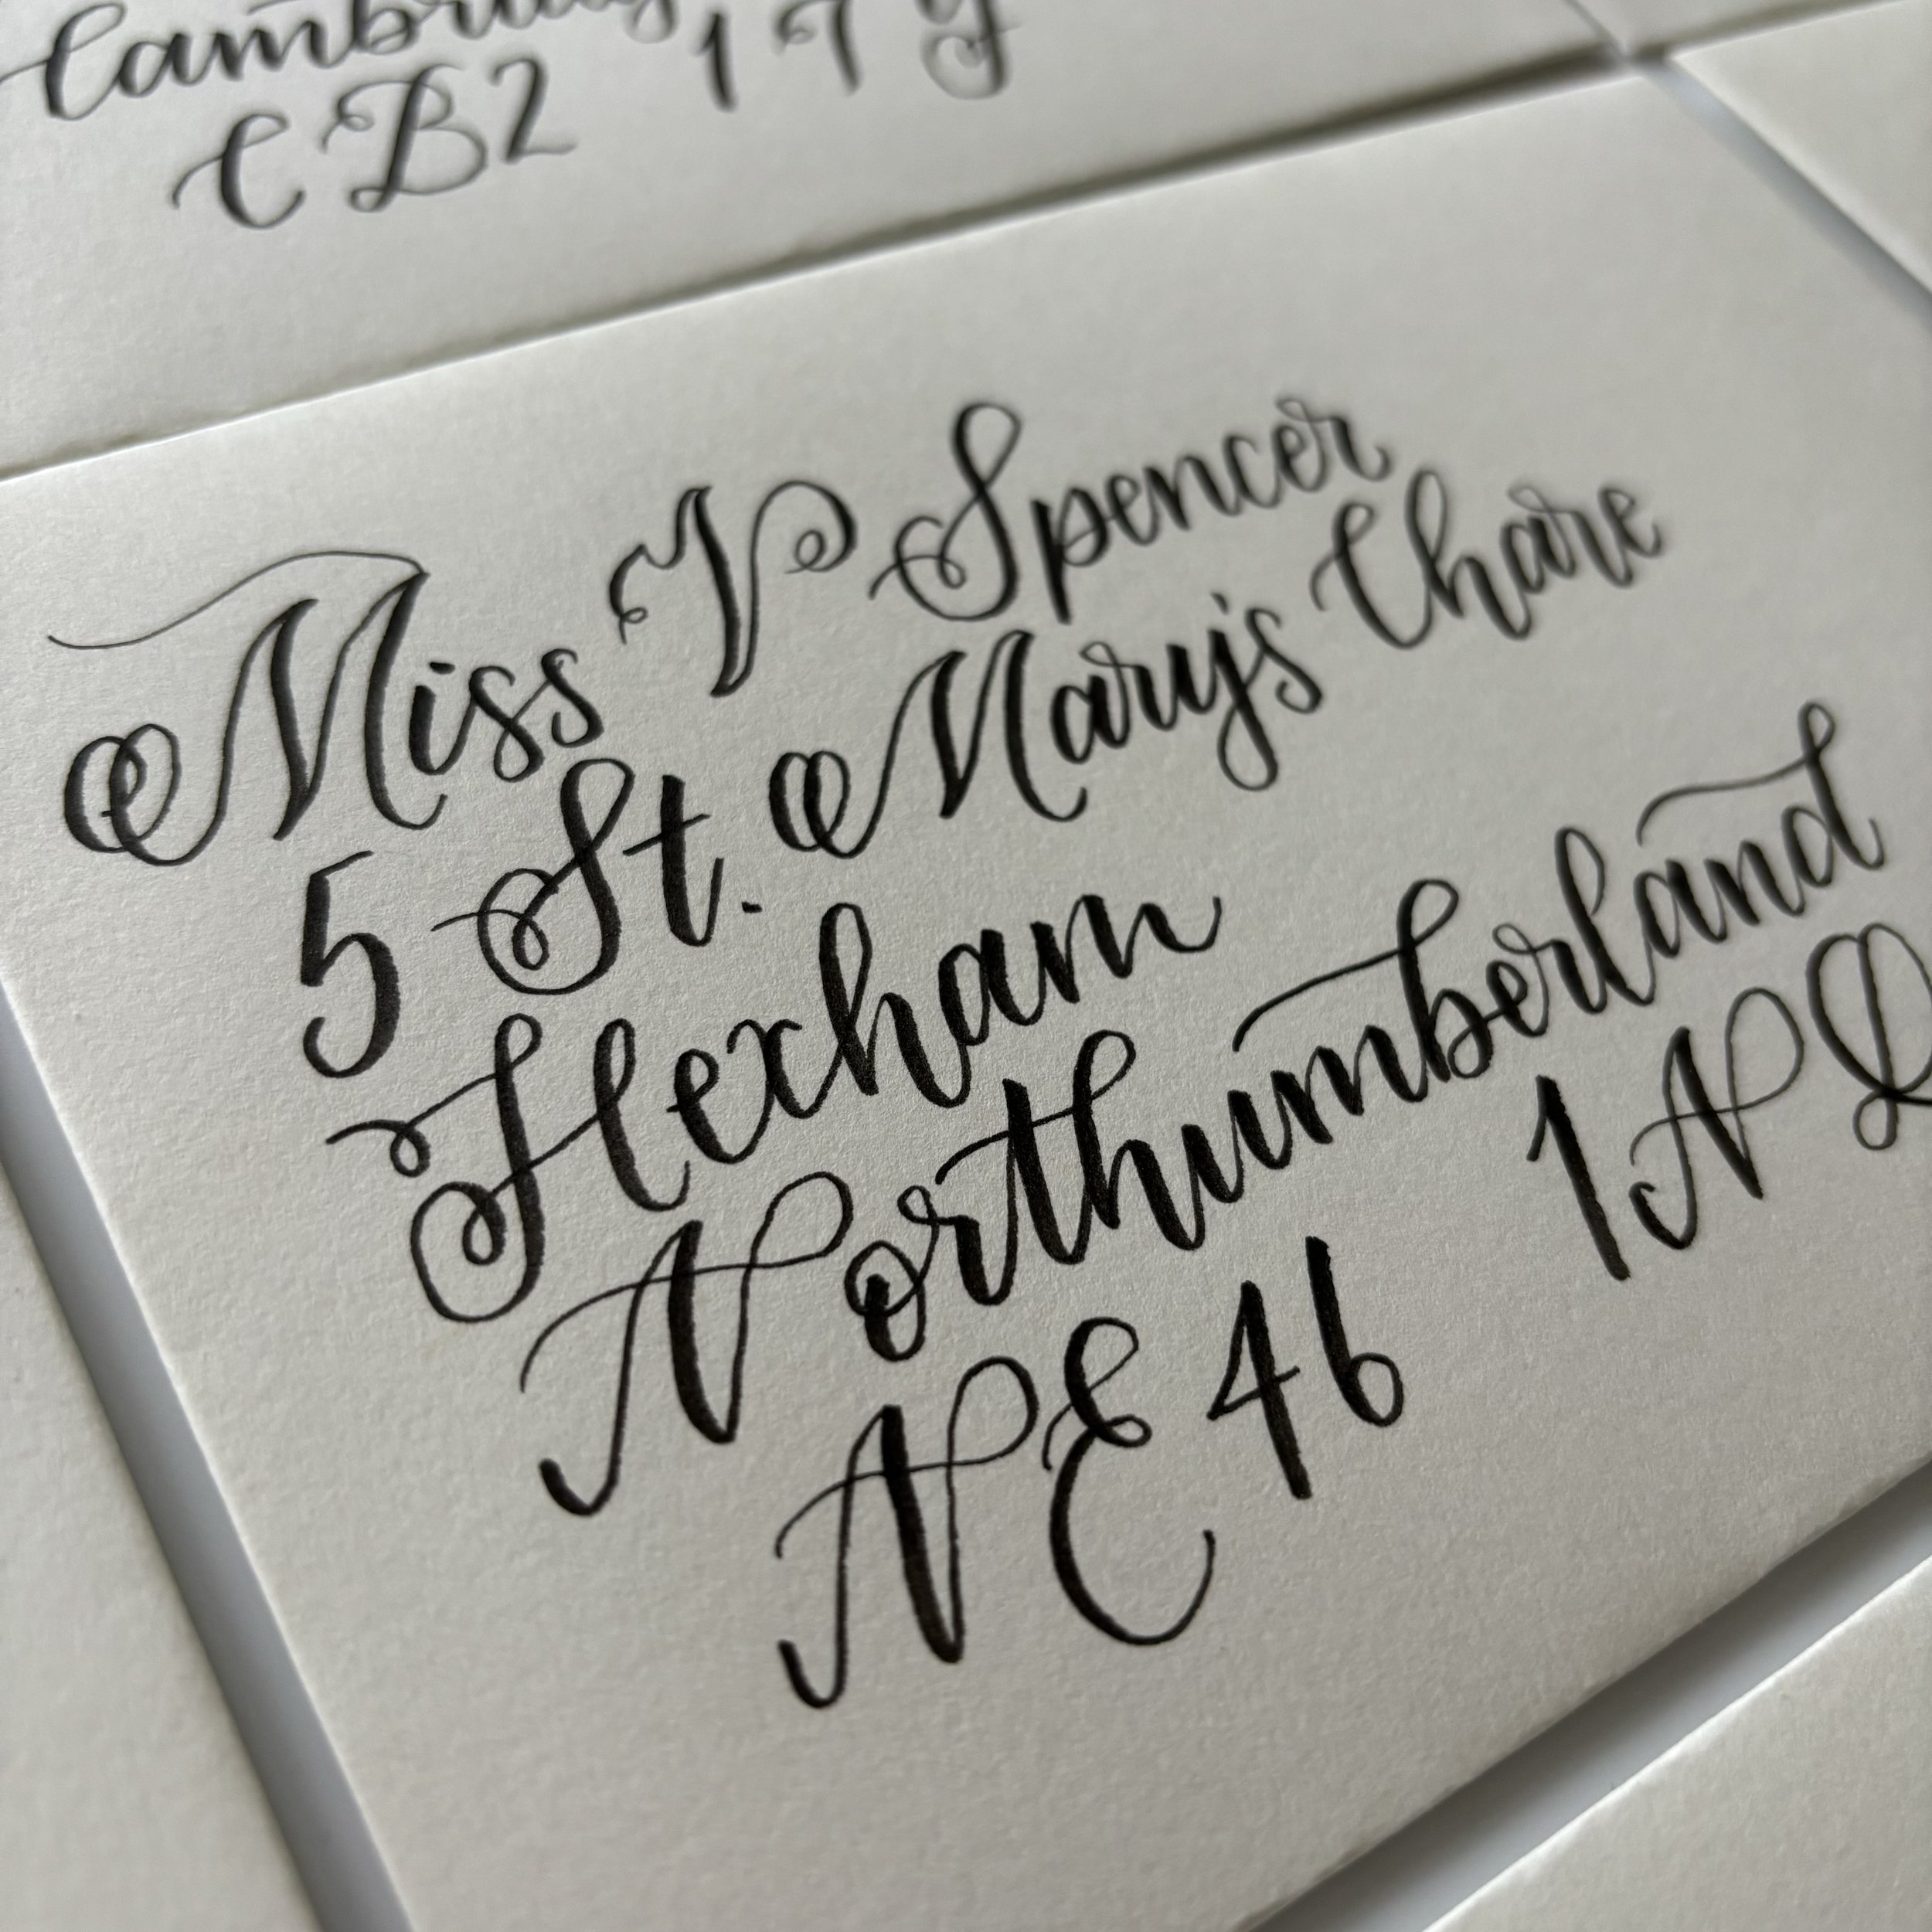 CB2 1T
Miss V Spencer
5 St. Mary's Chare
Hexham
Northumberland
NE46 1N